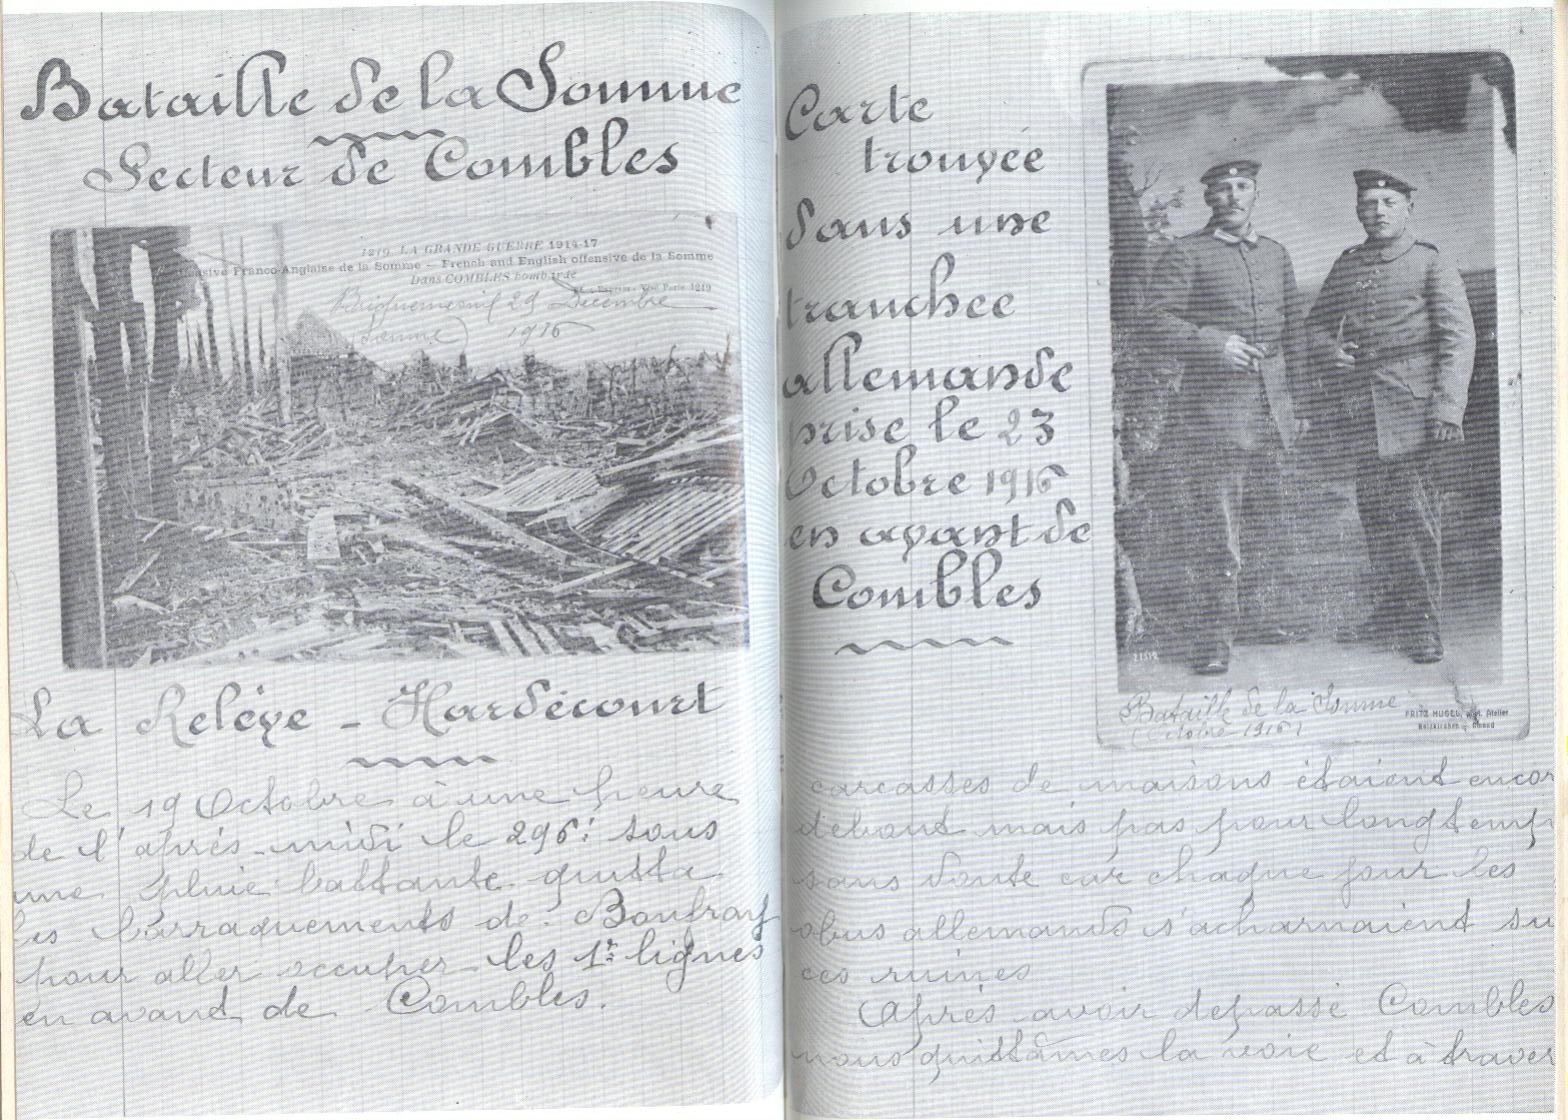 Bataille de la Somme
Secteur de Combles
1219. LA GRANDE GUERRE 1914-17
sive Franco-Anglaise de la Somme — French and English offensive de la Somme
Dans COMBLES bombardé
29 Décembre
1916
La Relève - Hardécourt
Le 19 Octobre à une heure
de l'après-midi le 296e sous
une pluie battante quitta
les barraquements de Boufray
pour aller occuper les 1r lignes
en avand de Combles.
Carte
trouvée
dans une
tranchee
allemande
prise le 23
Octobre 1916
en avant de
Combles
Bataille de la Somme
Octobre 1916
FRITZ HUGEL, Atelier
carcasses de maisons étaient encor
debout mais pas pour longtemps
sans doute car chaque jour les
obus allemands s'acharnaient su
ces ruines
Après avoir depassé Combles
nous quittâmes la voie et à traver